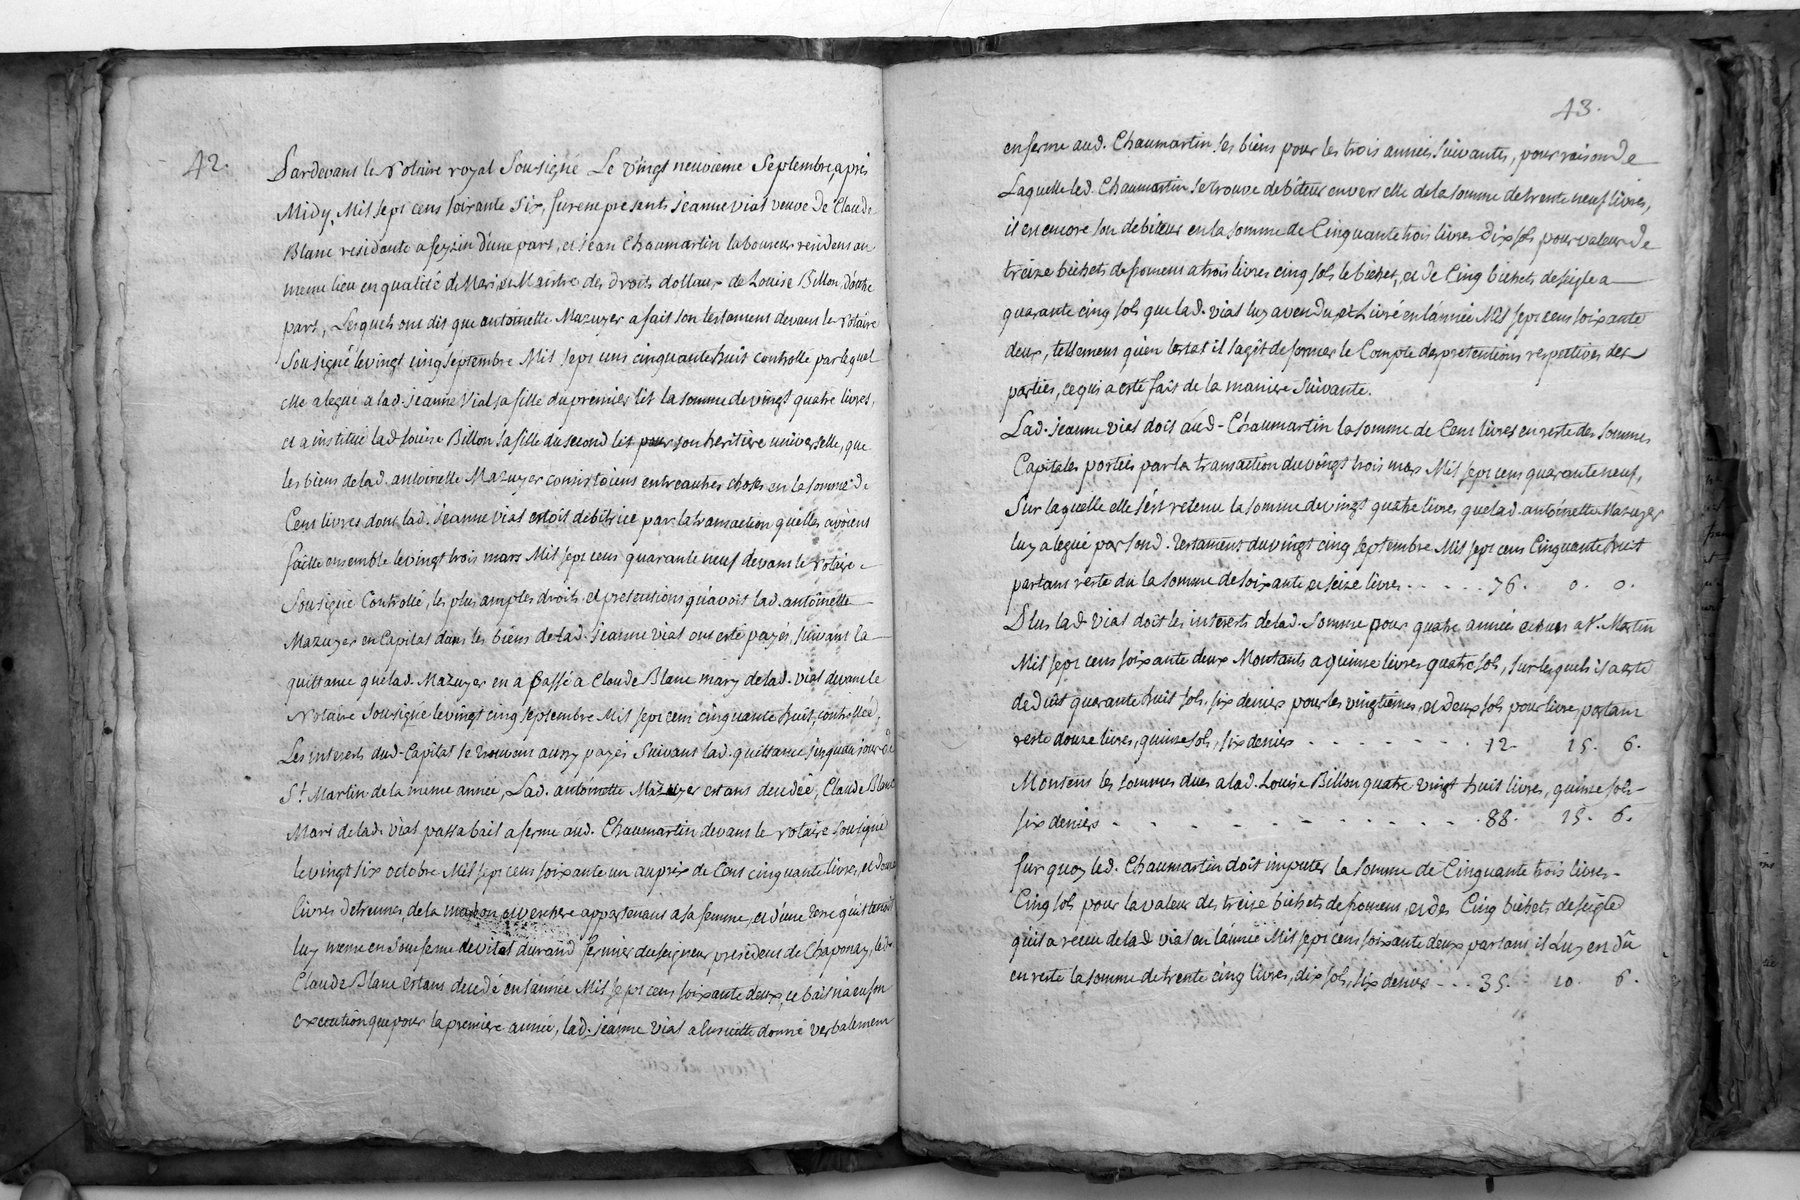 42.
Pardevant le Notaire royal Sousigné Le vingt neuvieme Septembre, après
Midy, Mil sept cens soixante six, furent présents jeanne vial veuve de Claude
Blanc residante a feyzin d'une part, et jean Chaumartin laboureur residens au
meme lieu en qualité de Mari, et Maitre des droits dottaux de Louise Billon, d'autre
part, Lesquels ont dit que antoinette Mazuyer a fait son testament devant le Notaire
Sousigné le vingt cinq septembre Mil sept cens cinquante huit controllé par lequel
elle a legué a lad. jeanne Vial sa fille du premier lit la somme de vingt quatre livres,
et a institué lad. Louise Billon sa fille du second lit pour son heritiere universelle, que
les biens de lad. antoinette Mazuyer consistoient entre autres choses en la somme de
Cent livres dont lad. jeanne vial estoit debitrice par la transaction qu'elles avoient
faitte ensemble le vingt trois mars Mil sept cens quarante neuf devant le Notaire
Sousigné Controllé, les plus amples droits et pretentions qu'avoit lad. antoinette
Mazuyer en Capital dans les biens de lad. jeanne vial ont esté payés, suivant la
quittance que lad. Mazuyer en a passé a Claude Blanc mary de lad. vial devant le
Notaire Sousigné le vingt cinq septembre Mil sept cens cinquante huit, controllée,
Les interets dud. Capital se trouvent aussy payés Suivant lad. quittance jusquau jour de
St. Martin de la meme année, Lad. antoinette Mazuyer estans decedée, Claude Blanc
Mari de lad. vial passa bail a ferme aud. Chaumartin devant le Notaire Sousigné
le vingt six octobre Mil sept cens soixante un au prix de Cent cinquante livres, et douze
livres detrennes, de la maison et verchere appartenant a sa femme, et d'une terre qu'il tenoit
luy meme en sous ferme de vital durand fermier du seigneur president de Chaponay, led.
Claude Blanc estans decedé en l'année Mil sept cens soixante deux, ce bail n'a eu son
execution que pour la premiere année, lad. jeanne vial a lui donné verbalement
43.
en ferme aud. Chaumartin ses biens pour les trois années suivantes, pour raison de
Laquelle led. Chaumartin se trouve debiteur envers elle de la somme de trente neuf livres,
il est encore son debiteur en la somme de Cinquante trois livres dix sols pour valeur de
treize bichets de froment a trois livres cinq sols le bichet, et de Cinq bichets de seigle a
quarante cinq sols que lad. vial luy a vendu, et Livré en l'année Mil sept cens soixante
deux, tellement qu'en lestat il s'agit de former le Compte des pretentions respectives des
parties, ce qui a esté fait de la maniere Suivante.
Lad. jeanne vial doit aud. Chaumartin la somme de Cent livres en reste des sommes
Capitales portées par la transaction du vingt trois mars Mil sept cens quarante neuf,
Sur laquelle elle s'est retenu la somme de vingt quatre livres que lad. antoinette Mazuyer
luy a legué par sond. testament du vingt cinq septembre Mil sept cens Cinquante huit
partant reste du la somme de soixante et seize livres - - - - - 76. 0. 0.
Plus lad. vial doit les interests de lad. Somme pour quatre années echues a St. Martin
Mil sept cens soixante deux Montants a quinze livres quatre sols, sur lesquels il a esté
deduit quarante huit sols, six deniers pour les vingtiemes, et deux sols pour livre, partant
reste douze livres, quinze sols, six deniers - - - - - - - 12. 15. 6.
Montent les sommes dues a lad. Louise Billon quatre vingt huit livres, quinze sols
six deniers - - - - - - - - - - - 88. 15. 6.
Sur quoy led. Chaumartin doit imputer la somme de Cinquante trois livres
Cinq sols pour la valeur des treize bichets de froment, et des Cinq bichets de seigle
qu'il a receu de lad. vial en l'année Mil sept cens soixante deux partant il Luy est dû
en reste la somme de trente cinq livres, dix sols, six deniers - - - 35. 10. 6.